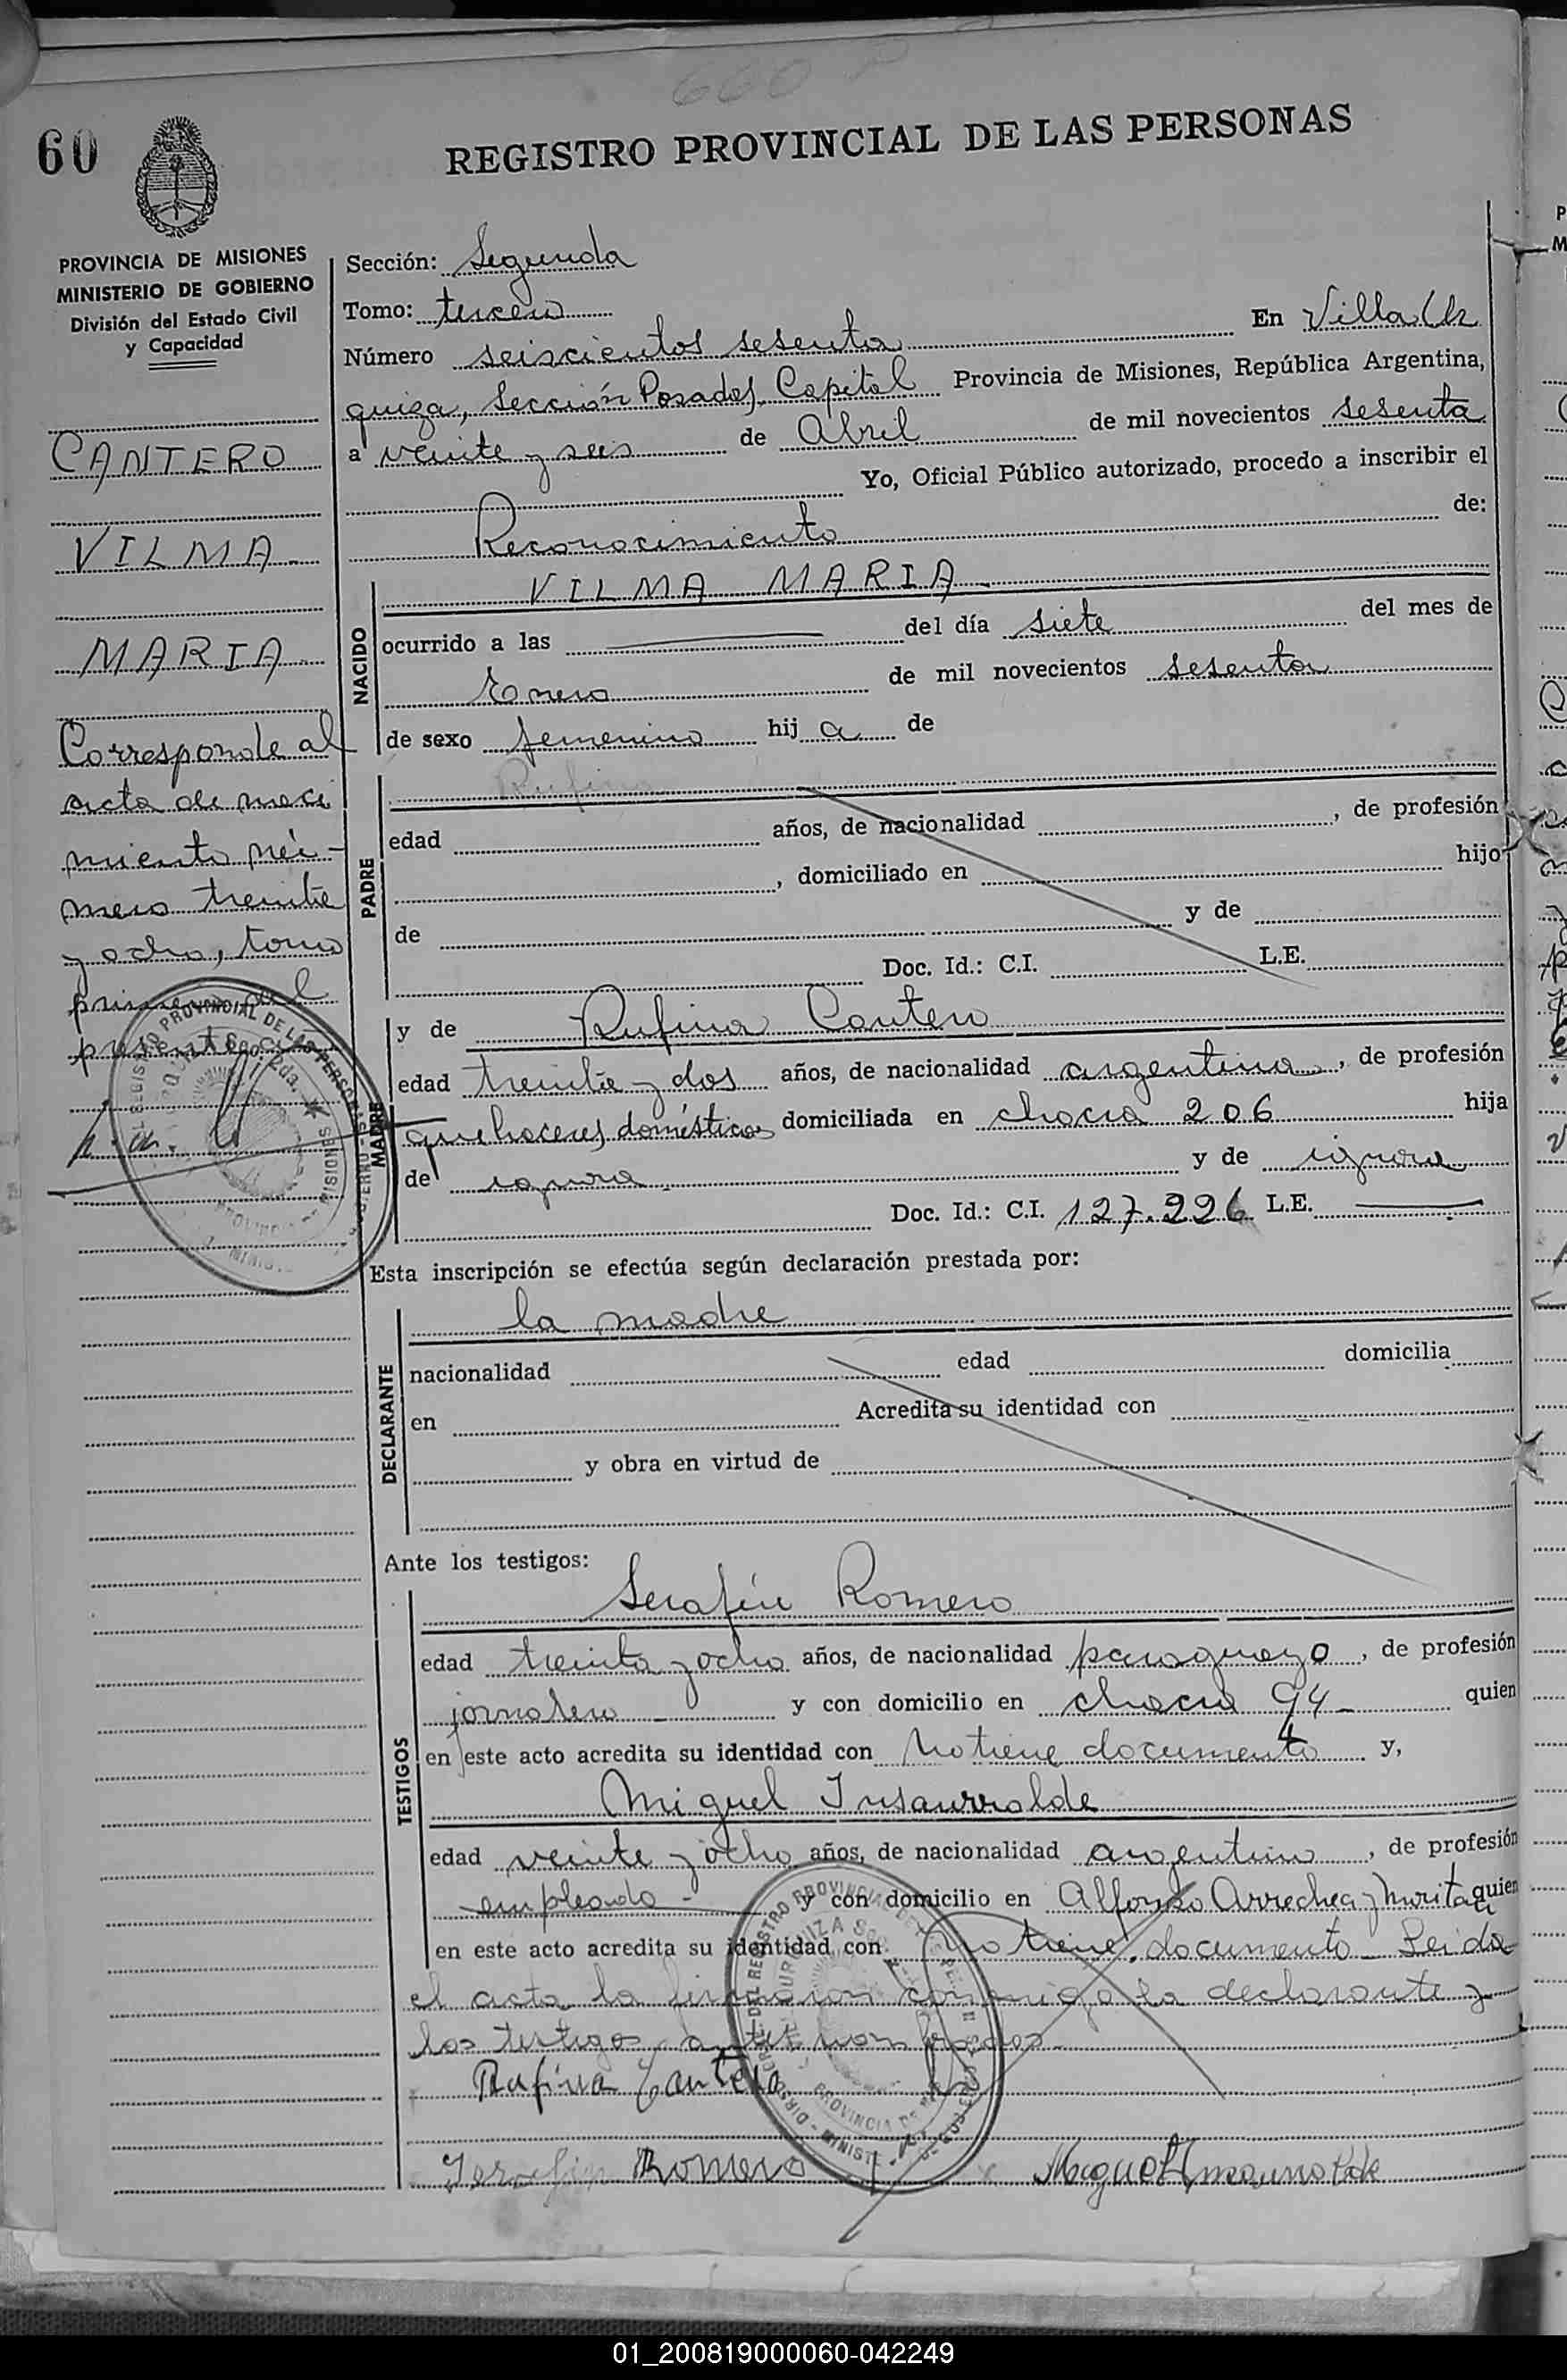 660
60
REGISTRO PROVINCIAL DE LAS PERSONAS
PROVINCIA DE MISIONES
MINISTERIO DE GOBIERNO
División del Estado Civil
y Capacidad
CANTERO
VILMA
MARIA
Corresponde al
acta de naci
miento nú-
mero treinta
y ocho, tomo
primero del
presente
p.a.
Sección: Segunda
Tomo: tercero
Número seiscientos sesenta En Villa Ur
quiza, Sección Posadas, Capital Provincia de Misiones, República Argentina,
a veinte y seis de Abril de mil novecientos sesenta
Yo, Oficial Público autorizado, procedo a inscribir el
Reconocimiento de:
NACIDO
VILMA MARIA
ocurrido a las del día siete del mes de
Enero de mil novecientos sesenta
de sexo femenino hij a de
PADRE
Rufina
edad años, de nacionalidad , de profesión
, domiciliado en hijo
de y de
Doc. Id.: C.I. L.E.
MADRE
y de Rufina Cantero
edad treinta y dos años, de nacionalidad argentina, de profesión
quehaceres domésticos domiciliada en chacra 206 hija
de ignora y de ignora
Doc. Id.: C.I. 127.226 L.E.
Esta inscripción se efectúa según declaración prestada por:
DECLARANTE
la madre
nacionalidad edad domicilia
en Acredita su identidad con
y obra en virtud de
Ante los testigos:
TESTIGOS
Serafín Romero
edad treinta y ocho años, de nacionalidad paraguayo, de profesión
jornalero y con domicilio en chacra 94 quien
en este acto acredita su identidad con No tiene documento y,
Miguel Insaurralde
edad veinte y ocho años, de nacionalidad argentino, de profesión
empleado - y con domicilio en Alfonso Arrechea y quien
en este acto acredita su identidad con No tiene documento - Leida
el acta la firmaron conmigo la declarante y
los testigos antes nombrados.
Rufina Cantero
Serafin Romero
Miguel
01_200819000060-042249